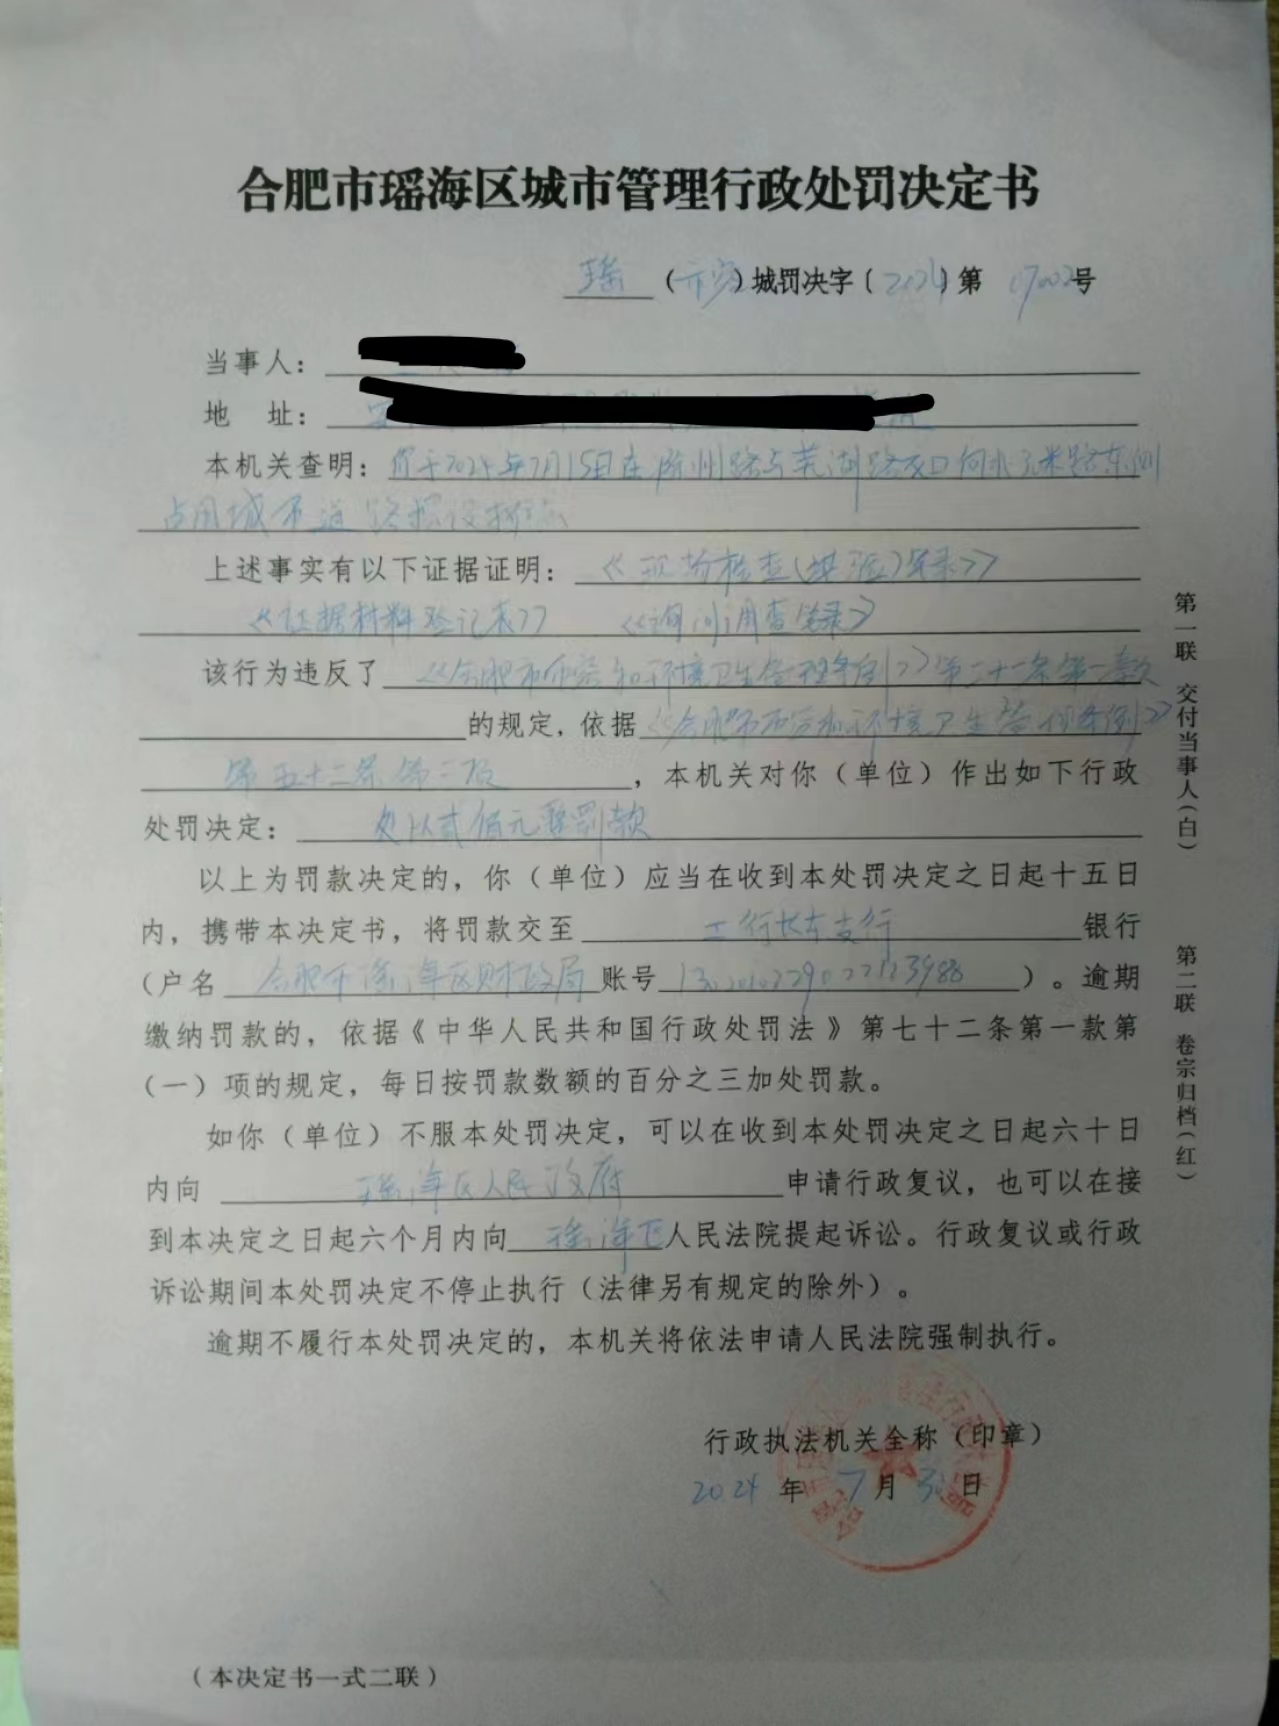 合肥市瑶海区城市管理行政处罚决定书
瑶（市容）城罚决字〔2024〕第 号
当事人：
地 址：
本机关查明：你于2024年7月15日在 州路与芜湖路交口向 米路东侧
占用城市道路摆设
上述事实有以下证据证明：《现场检查（勘验）笔录》
《证据材料登记表》 《询问调查笔录》
该行为违反了《合肥市市容和环境卫生管理条例》第二十一条第一款
的规定，依据《合肥市市容和环境卫生管理条例》
第五十二条第三 ，本机关对你（单位）作出如下行政
处罚决定：处以贰佰元整罚款
以上为罚款决定的，你（单位）应当在收到本处罚决定之日起十五日
内，携带本决定书，将罚款交至 工行长 支行 银行
（户名 合肥市瑶海区财政局 账号 ）。逾期
缴纳罚款的，依据《中华人民共和国行政处罚法》第七十二条第一款第
（一）项的规定，每日按罚款数额的百分之三加处罚款。
如你（单位）不服本处罚决定，可以在收到本处罚决定之日起六十日
内向 瑶海区人民政府 申请行政复议，也可以在接
到本决定之日起六个月内向 瑶海区 人民法院提起诉讼。行政复议或行政
诉讼期间本处罚决定不停止执行（法律另有规定的除外）。
逾期不履行本处罚决定的，本机关将依法申请人民法院强制执行。
行政执法机关全称（印章）
2024 年 7 月 日
（本决定书一式二联）
第一联 交付当事人（白）
第二联 卷宗归档（红）